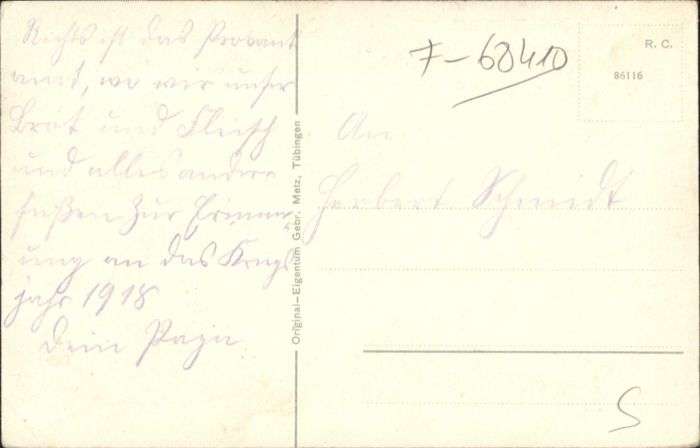 Rechts ist das Proviant
amt, wo wir unser
Brot und Fleisch
und alles andere
faßen zur Erinner
ung an das Kriegs
jahr 1918
Dein Papa
Original-Eigentum Gebr. Metz, Tübingen
7-68410
R. C.
86116
An
Herbert Schmidt
S